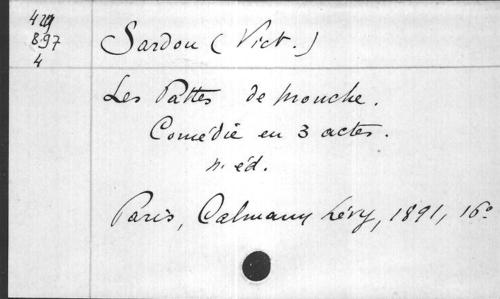 429
897
4
Sardou (Vict.)
Les Pattes de mouche.
Comédie en 3 actes.
n. éd.
Paris, Calmann Lévy, 1891, 16°